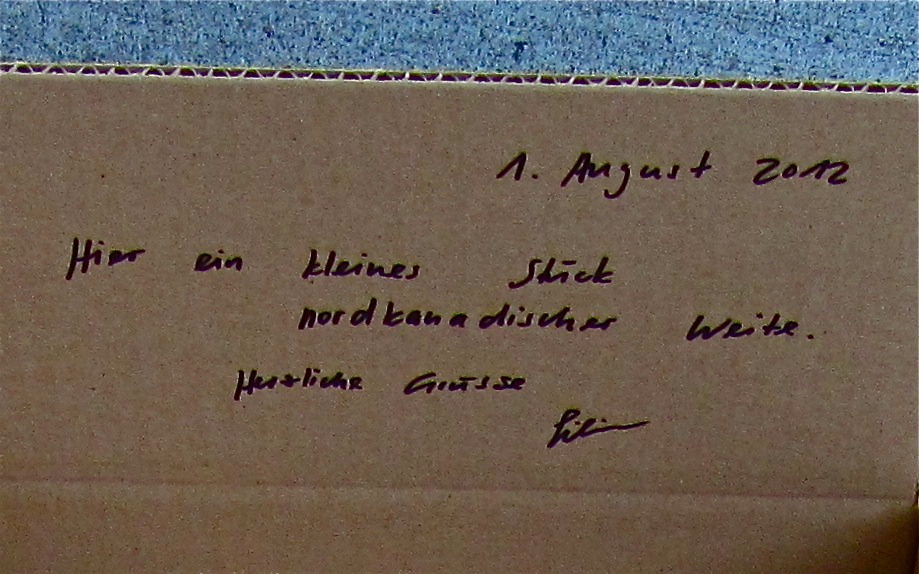 1. August 2012
Hier ein kleines Stück
nordkanadischer Weite.
Herzliche Grüsse